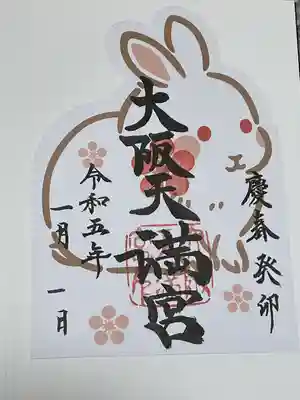 慶春癸卯
大阪天満宮
令和五年
一月一日